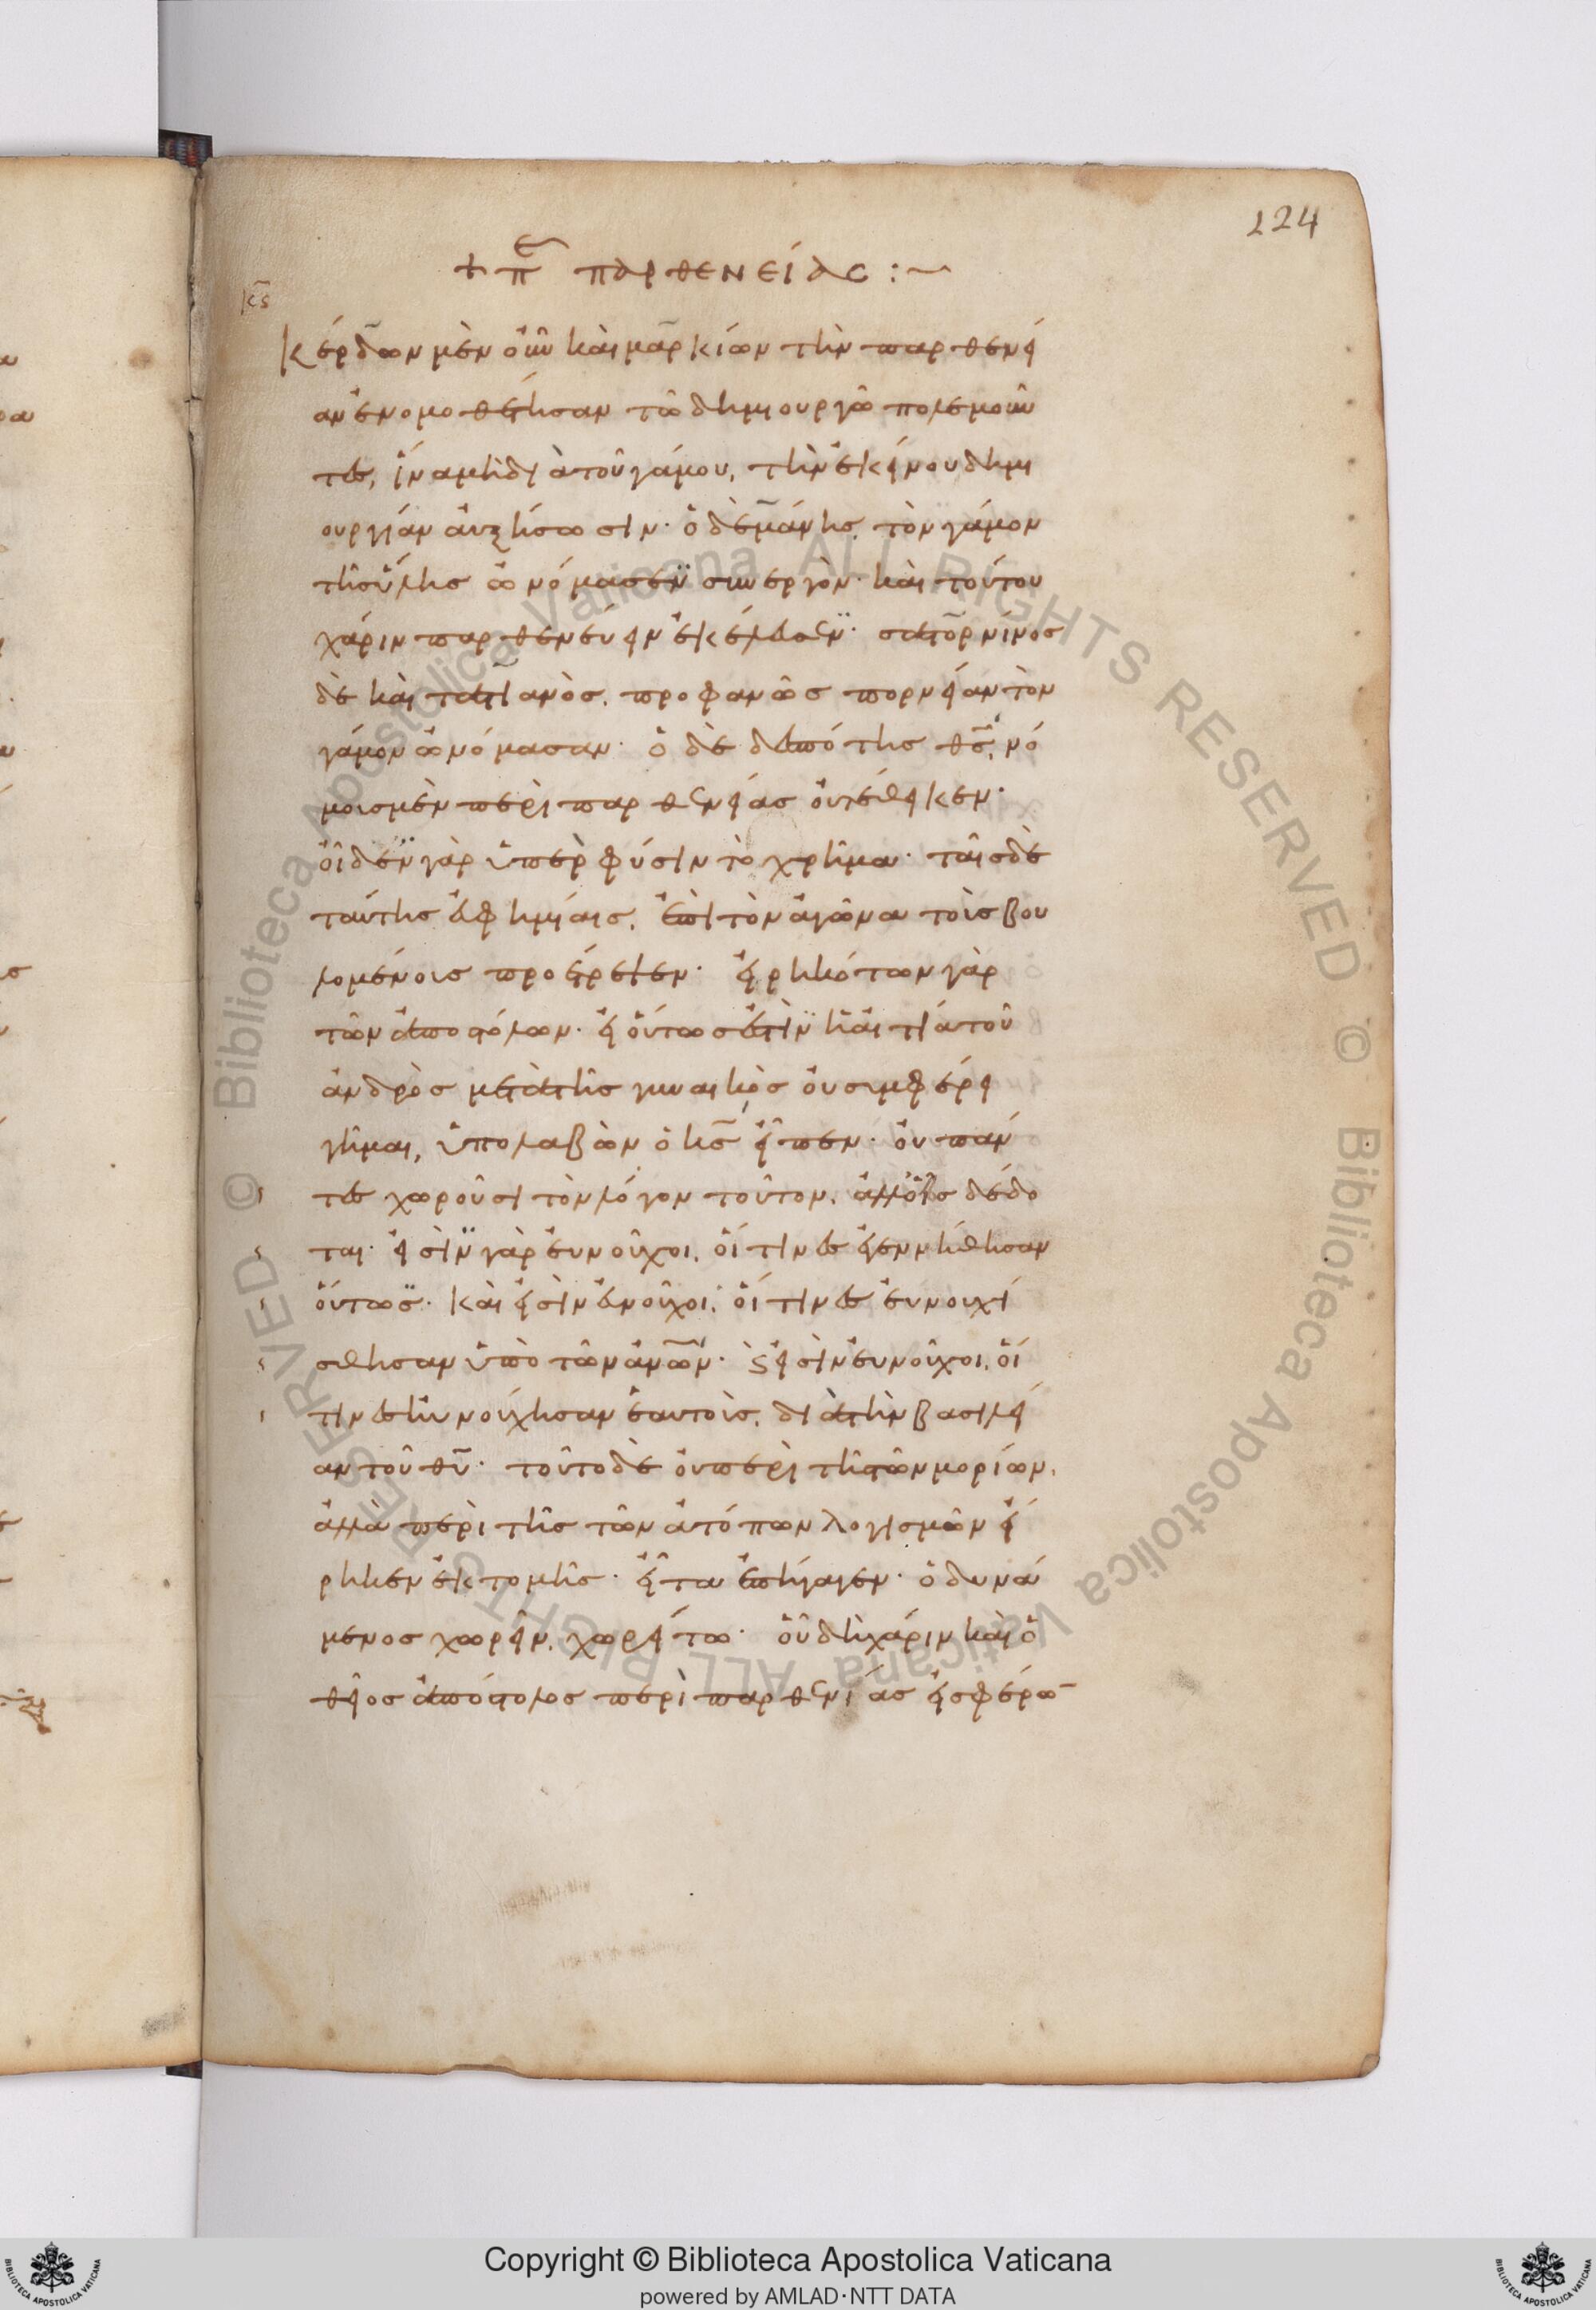 224
+ πε παρθενείας :~
κς
Κέρδων μὲν οὖν καὶ μαρκίων τὴν παρθενεί
αν ἐνομοθέτησαν τῶ δημιουργῶ πολεμοῦν
τες, ἵνα μὴ διὰ τοῦ γάμου, τὴν ἐκείνου δημι
ουργίαν αὐξήσωσιν· ὁ δὲ μάνης, τὸν γάμον
τῆς ὕλης ὠνόμασεν συνεργόν· καὶ τούτου
χάριν παρθενεύειν ἐκέλευσεν· σατορνίνος
δὲ καὶ τατιανὸς, προφανῶς πορνείαν τὸν
γάμον ὠνόμασαν· ὁ δὲ δεσπότης θς, νό
μοις μὲν περὶ παρθενείας οὐ τέθεικεν·
οἶδεν γὰρ ὑπὲρ φύσιν τὸ χρῆμα· ταῖς δὲ
ταύτης εὐφημίαις, ἐπὶ τὸν ἀγῶνα τοῖς βου
λομένοις προέτρεψεν· εἰρηκότων γὰρ
τῶν ἀποστόλων· εἰ οὕτως ἐστὶν ἡ αἰτία τοῦ
ἀνδρὸς μετὰ τῆς γυναικὸς οὐ συμφέρει
γῆμαι, ὑπολαβὼν ὁ κς εἶπεν· οὐ πάν
τες χωροῦσι τὸν λόγον τοῦτον, ἀλλ' οἷς δέδο
ται· εἰσὶν γὰρ εὐνοῦχοι, οἵτινες ἐγεννήθησαν
οὕτως· καὶ εἰσὶν εὐνοῦχοι, οἵτινες εὐνουχί
σθησαν ὑπὸ τῶν ἀνων· ϗ εἰσὶν εὐνοῦχοι, οἵ
τινες ηὐνούχησαν ἑαυτοὺς, διὰ τὴν βασιλεί
αν τοῦ θυ· τοῦτο δὲ οὐ περὶ τῆς τῶν μορίων,
ἀλλὰ περὶ τῆς τῶν ἀτόπων λογισμῶν εἴ
ρηκεν ἐκτομῆς· εἶτα ἐπήγαγεν· ὁ δυνά
μενος χωρεῖν, χωρείτω· οὗ δὴ χάριν καὶ ὁ
θεῖος ἀπόστολος περὶ παρθενίας εἰσφέρω
Copyright © Biblioteca Apostolica Vaticana
powered by AMLAD·NTT DATA